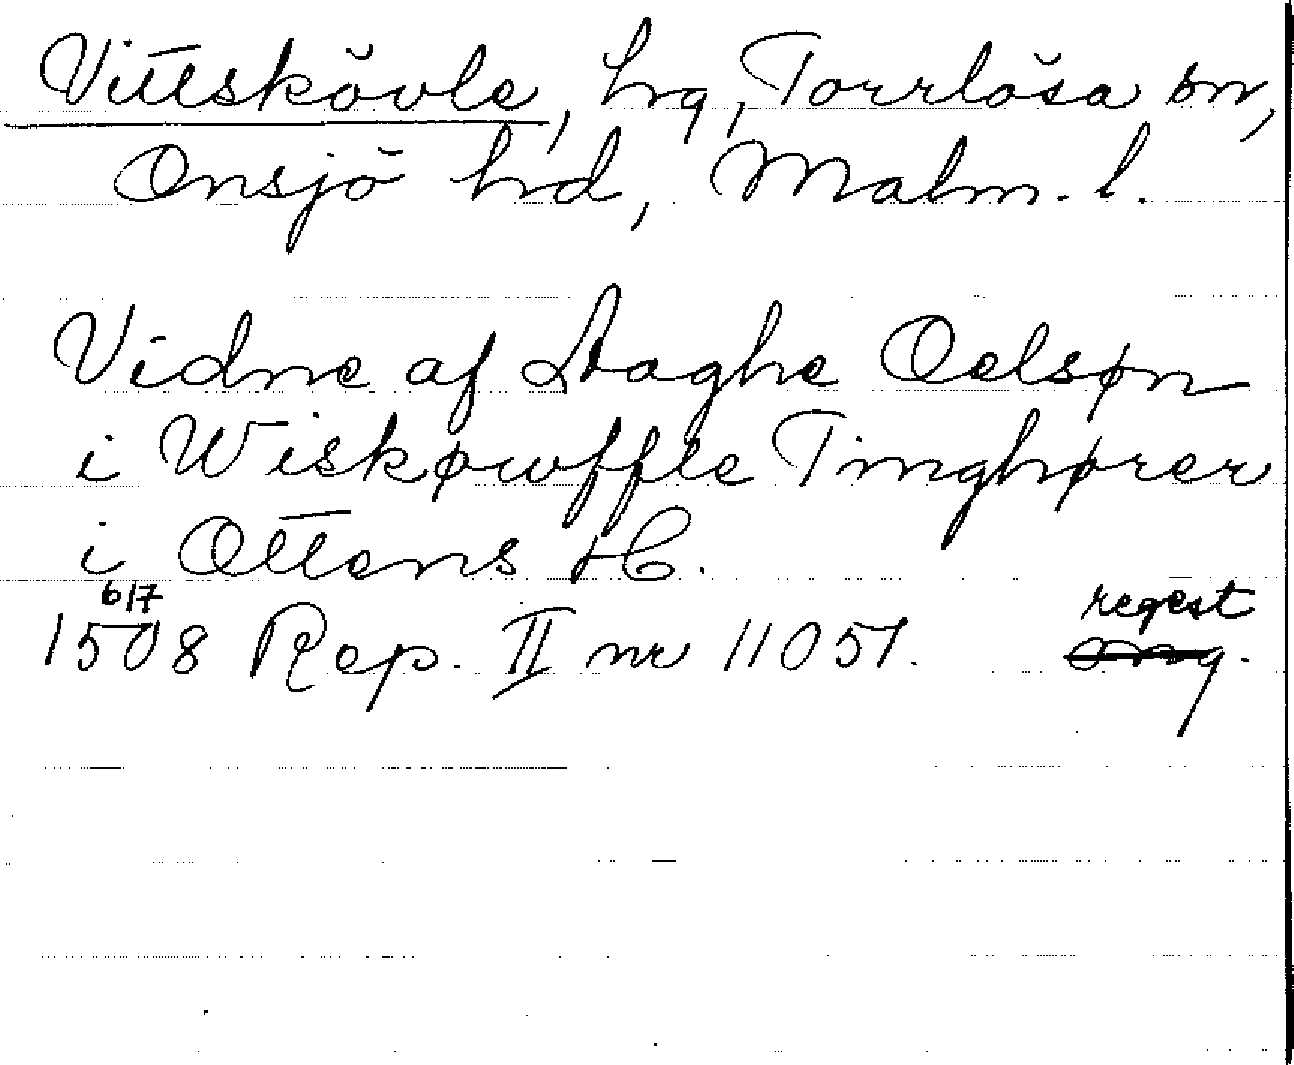 Vittskövle, hrg, Torrlösa sn,
Onsjö hd, Malm. l.
Vidne af Aaghe Oelsøn
i Wiskøwffle Tinghører
i Ottens H.
6/7
1508 Rep. II nr 11051. regest